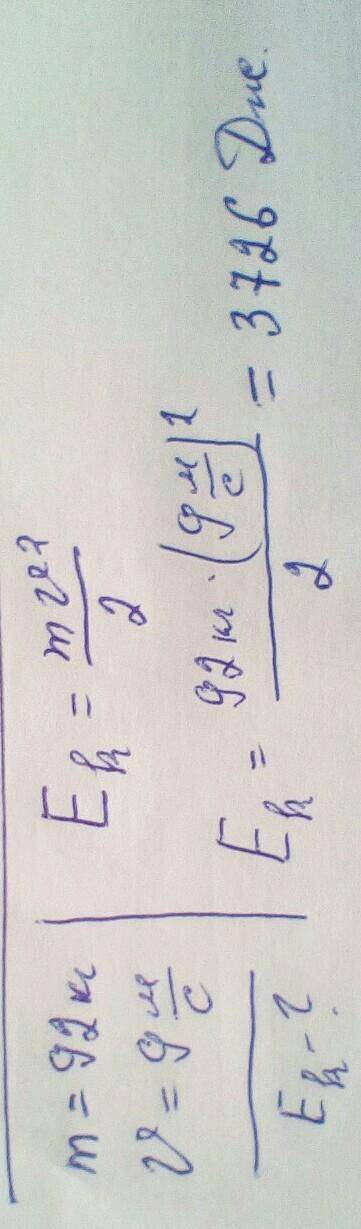 m = 92 кг
v = 9 м/с
Eк - ?
Eк = mv²/2
Eк = 92 кг · (9 м/с)²/2 = 3726 Дж.